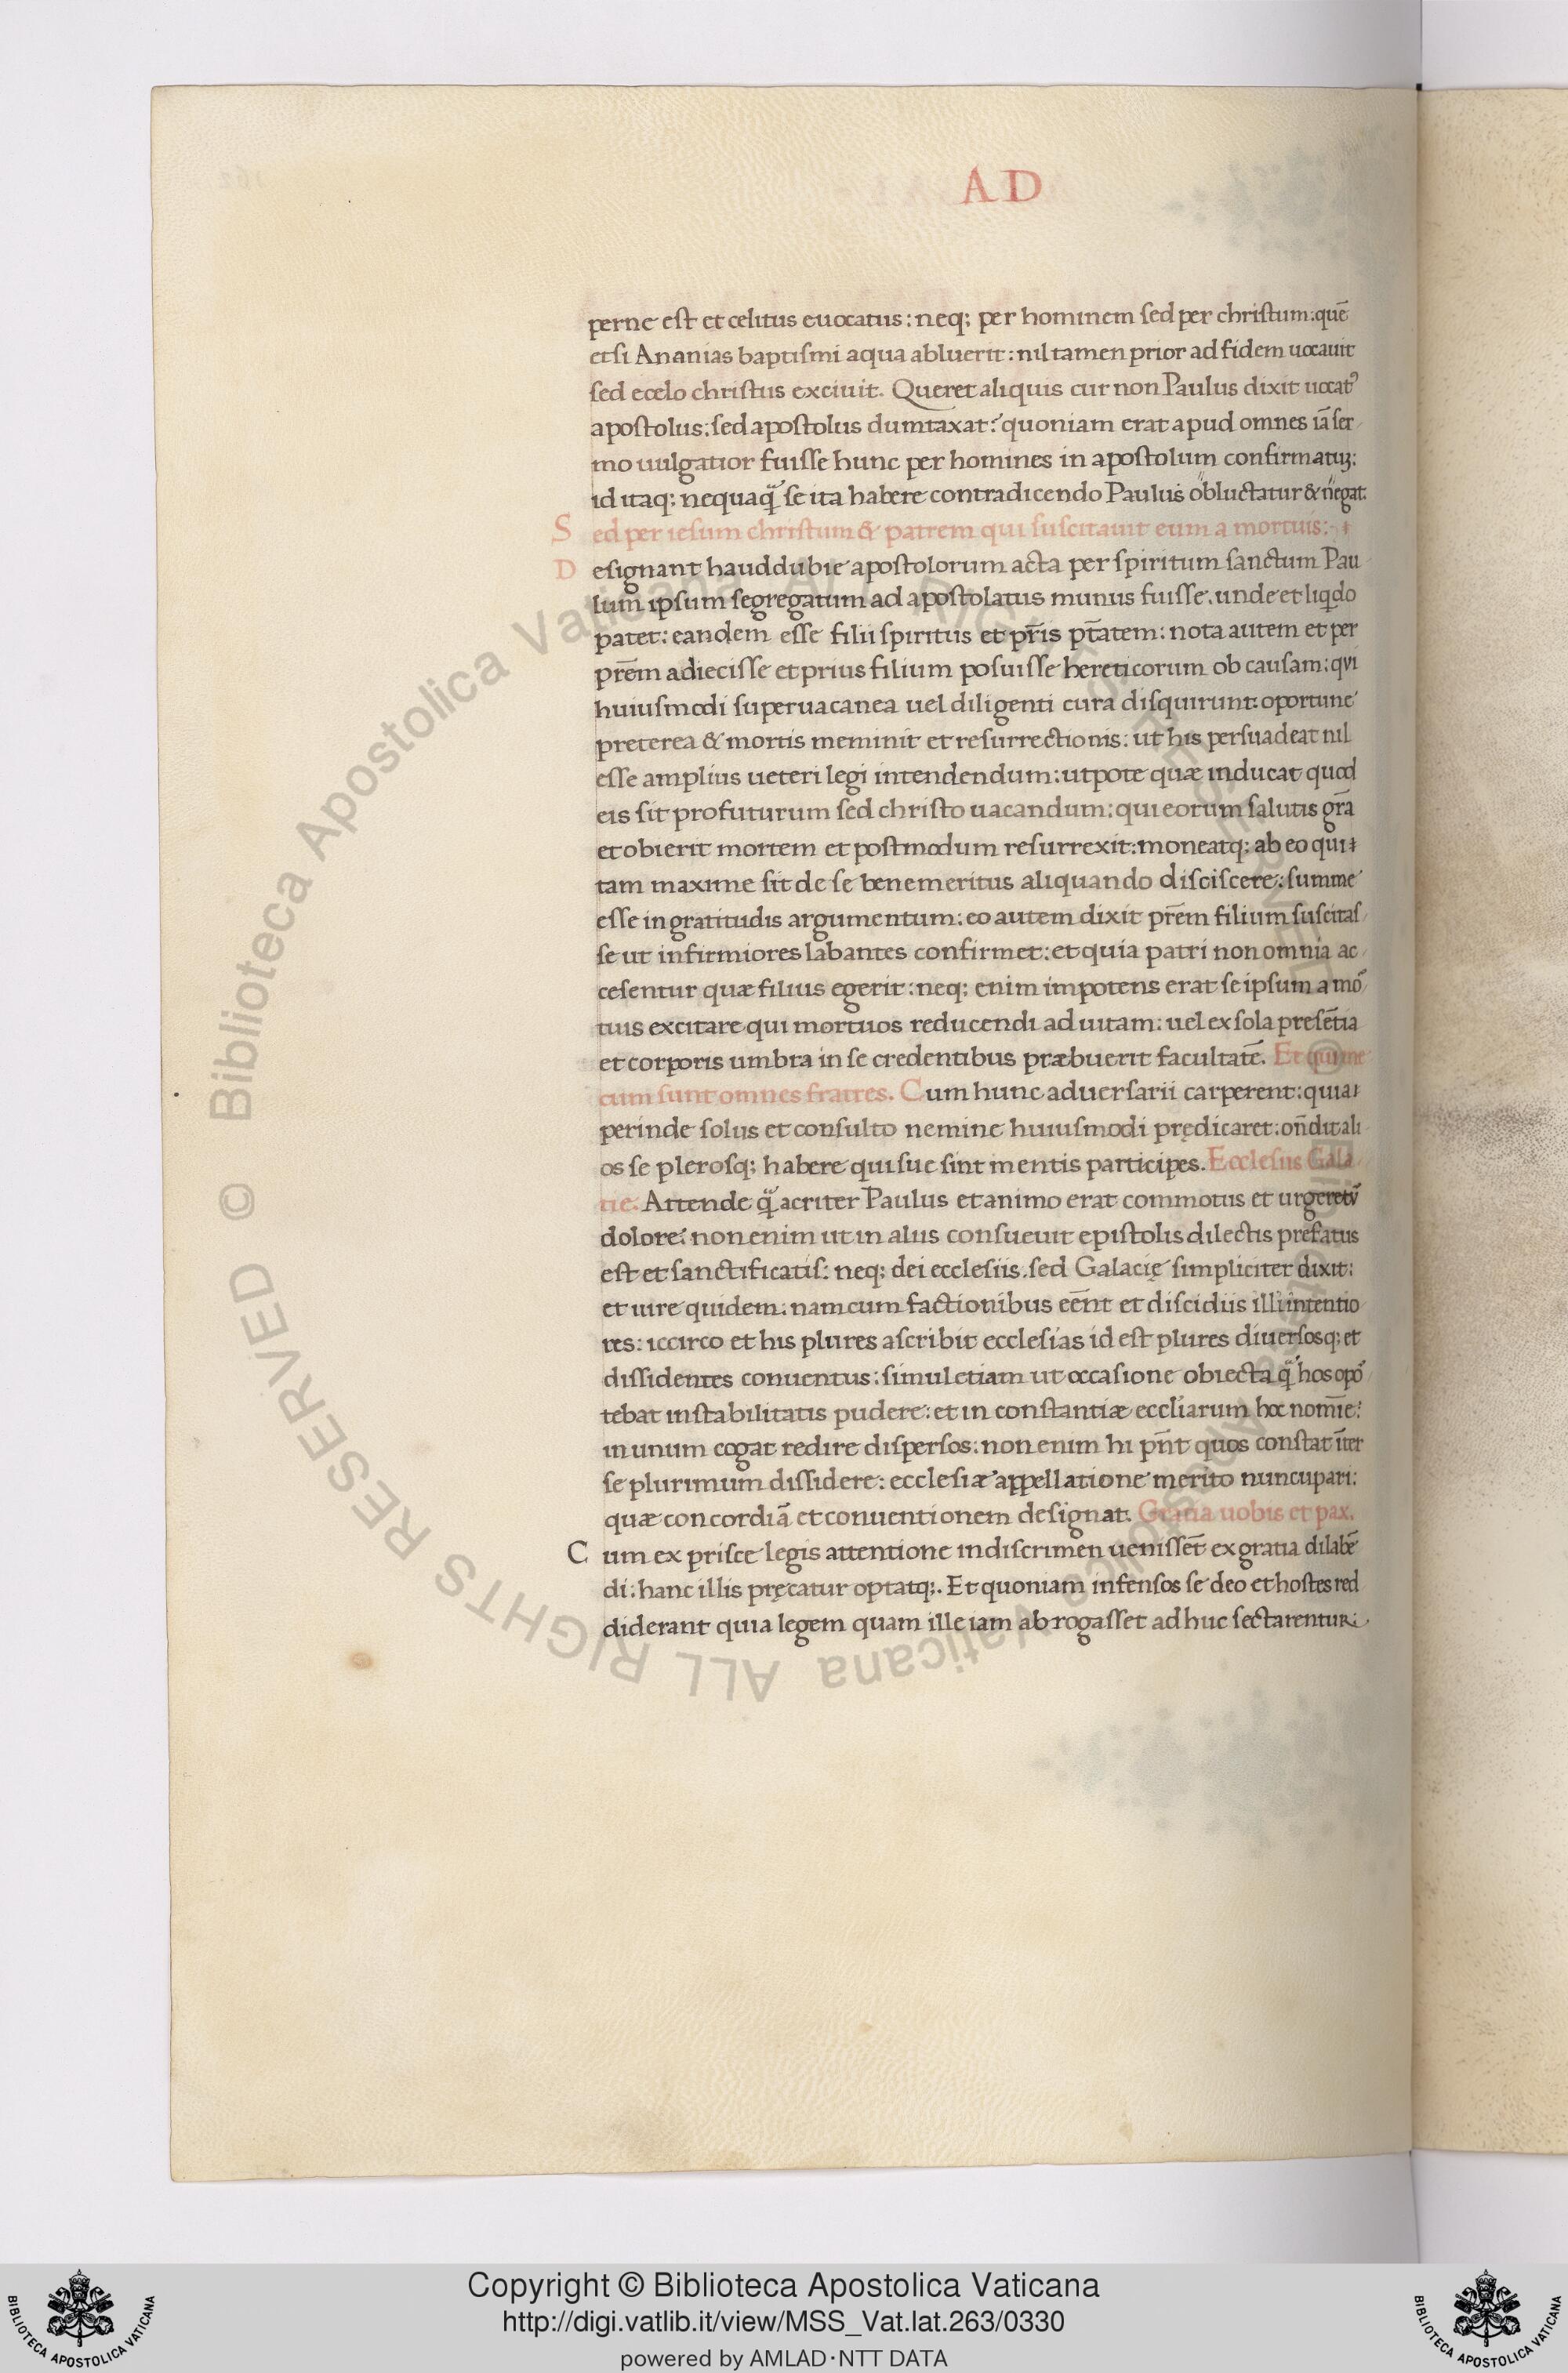 AD
perne est et celitus euocatus: neq; per hominem sed per christum: quē
etsi Ananias baptismi aqua abluerit: nil tamen prior ad fidem uocauit
sed e celo christus exciuit. Queret aliquis cur non Paulus dixit uocat᾽
apostolus: sed apostolus dumtaxat? quoniam erat apud omnes iā ser
mo uulgatior fuisse hunc per homines in apostolum confirmatū:
id itaq; nequaq̃ se ita habere contradicendo Paulus obluctatur & negat.
Sed per iesum christum & patrem qui suscitauit eum a mortuis:
Designant haud dubie apostolorum acta per spiritum sanctum Pau
lum ipsum segregatum ad apostolatus munus fuisse. unde et liqdo
patet: eandem esse filii spiritus et pr̄is pt̄atem: nota autem et per
prēm adiecisse et prius filium posuisse hereticorum ob causam: qui
huiusmodi superuacanea uel diligenti cura disquirunt: oportune
preterea & mortis meminit et resurrectionis: ut his persuadeat nil
esse amplius ueteri legi intendendum: utpote quæ inducat quod
eis sit profuturum sed christo uacandum: qui eorum salutis gr̄a
et obierit mortem et postmodum resurrexit: moneatq; ab eo qui
tam maxime sit de se benemeritus aliquando disciscere: summe
esse ingratitudis argumentum: eo autem dixit prēm filium suscitas
se ut infirmiores labantes confirmet: et quia patri non omnia ac
cesentur quæ filius egerit: neq; enim impotens erat se ipsum a mo᷒
tuis excitare qui mortuos reducendi ad uitam: uel ex sola presētia
et corporis umbra in se credentibus præbuerit facultatē. Et qui me
cum sunt omnes fratres. Cum hunc aduersarii carperent: quia
perinde solus et consulto nemine huiusmodi prędicaret: on̄dit ali
os se plerosq; habere qui sue sint mentis participes. Ecclesiis Gala
tie. Attende q̃ acriter Paulus et animo erat commotus et urgeret᷒
dolore: non enim ut in aliis consueuit epistolis dilectis prefatus
est et sanctificatis: neq; dei ecclesiis. sed Galacię simpliciter dixit:
et iure quidem: nam cum factionibus eēnt et discidiis illi intentio
res: iccirco et his plures ascribit ecclesias id est plures diuersosq; et
dissidentes conuentus: simul etiam ut occasione obiecta q̃ hos opo᷒
tebat instabilitatis pudere: et inconstantiæ eccl̄iarum hoc nomīe:
in unum cogat redire dispersos: non enim hi pn̄t quos constat īter
se plurimum dissidere: ecclesiæ appellatione merito nuncupari:
quæ concordiā et conuentionem designat. Gratia uobis et pax.
Cum ex prisce legis attentione in discrimen uenissēt ex gratia dilabē
di: hanc illis pręcatur optatq;. Et quoniam infensos se deo et hostes red
diderant quia legem quam ille iam abrogasset adhuc sectarentur:
Copyright © Biblioteca Apostolica Vaticana
http://digi.vatlib.it/view/MSS_Vat.lat.263/0330
powered by AMLAD·NTT DATA
BIBLIOTECA APOSTOLICA VATICANA
BIBLIOTECA APOSTOLICA VATICANA
© Biblioteca Apostolica Vaticana ALL RIGHTS RESERVED
© Biblioteca Apostolica Vaticana ALL RIGHTS RESERVED